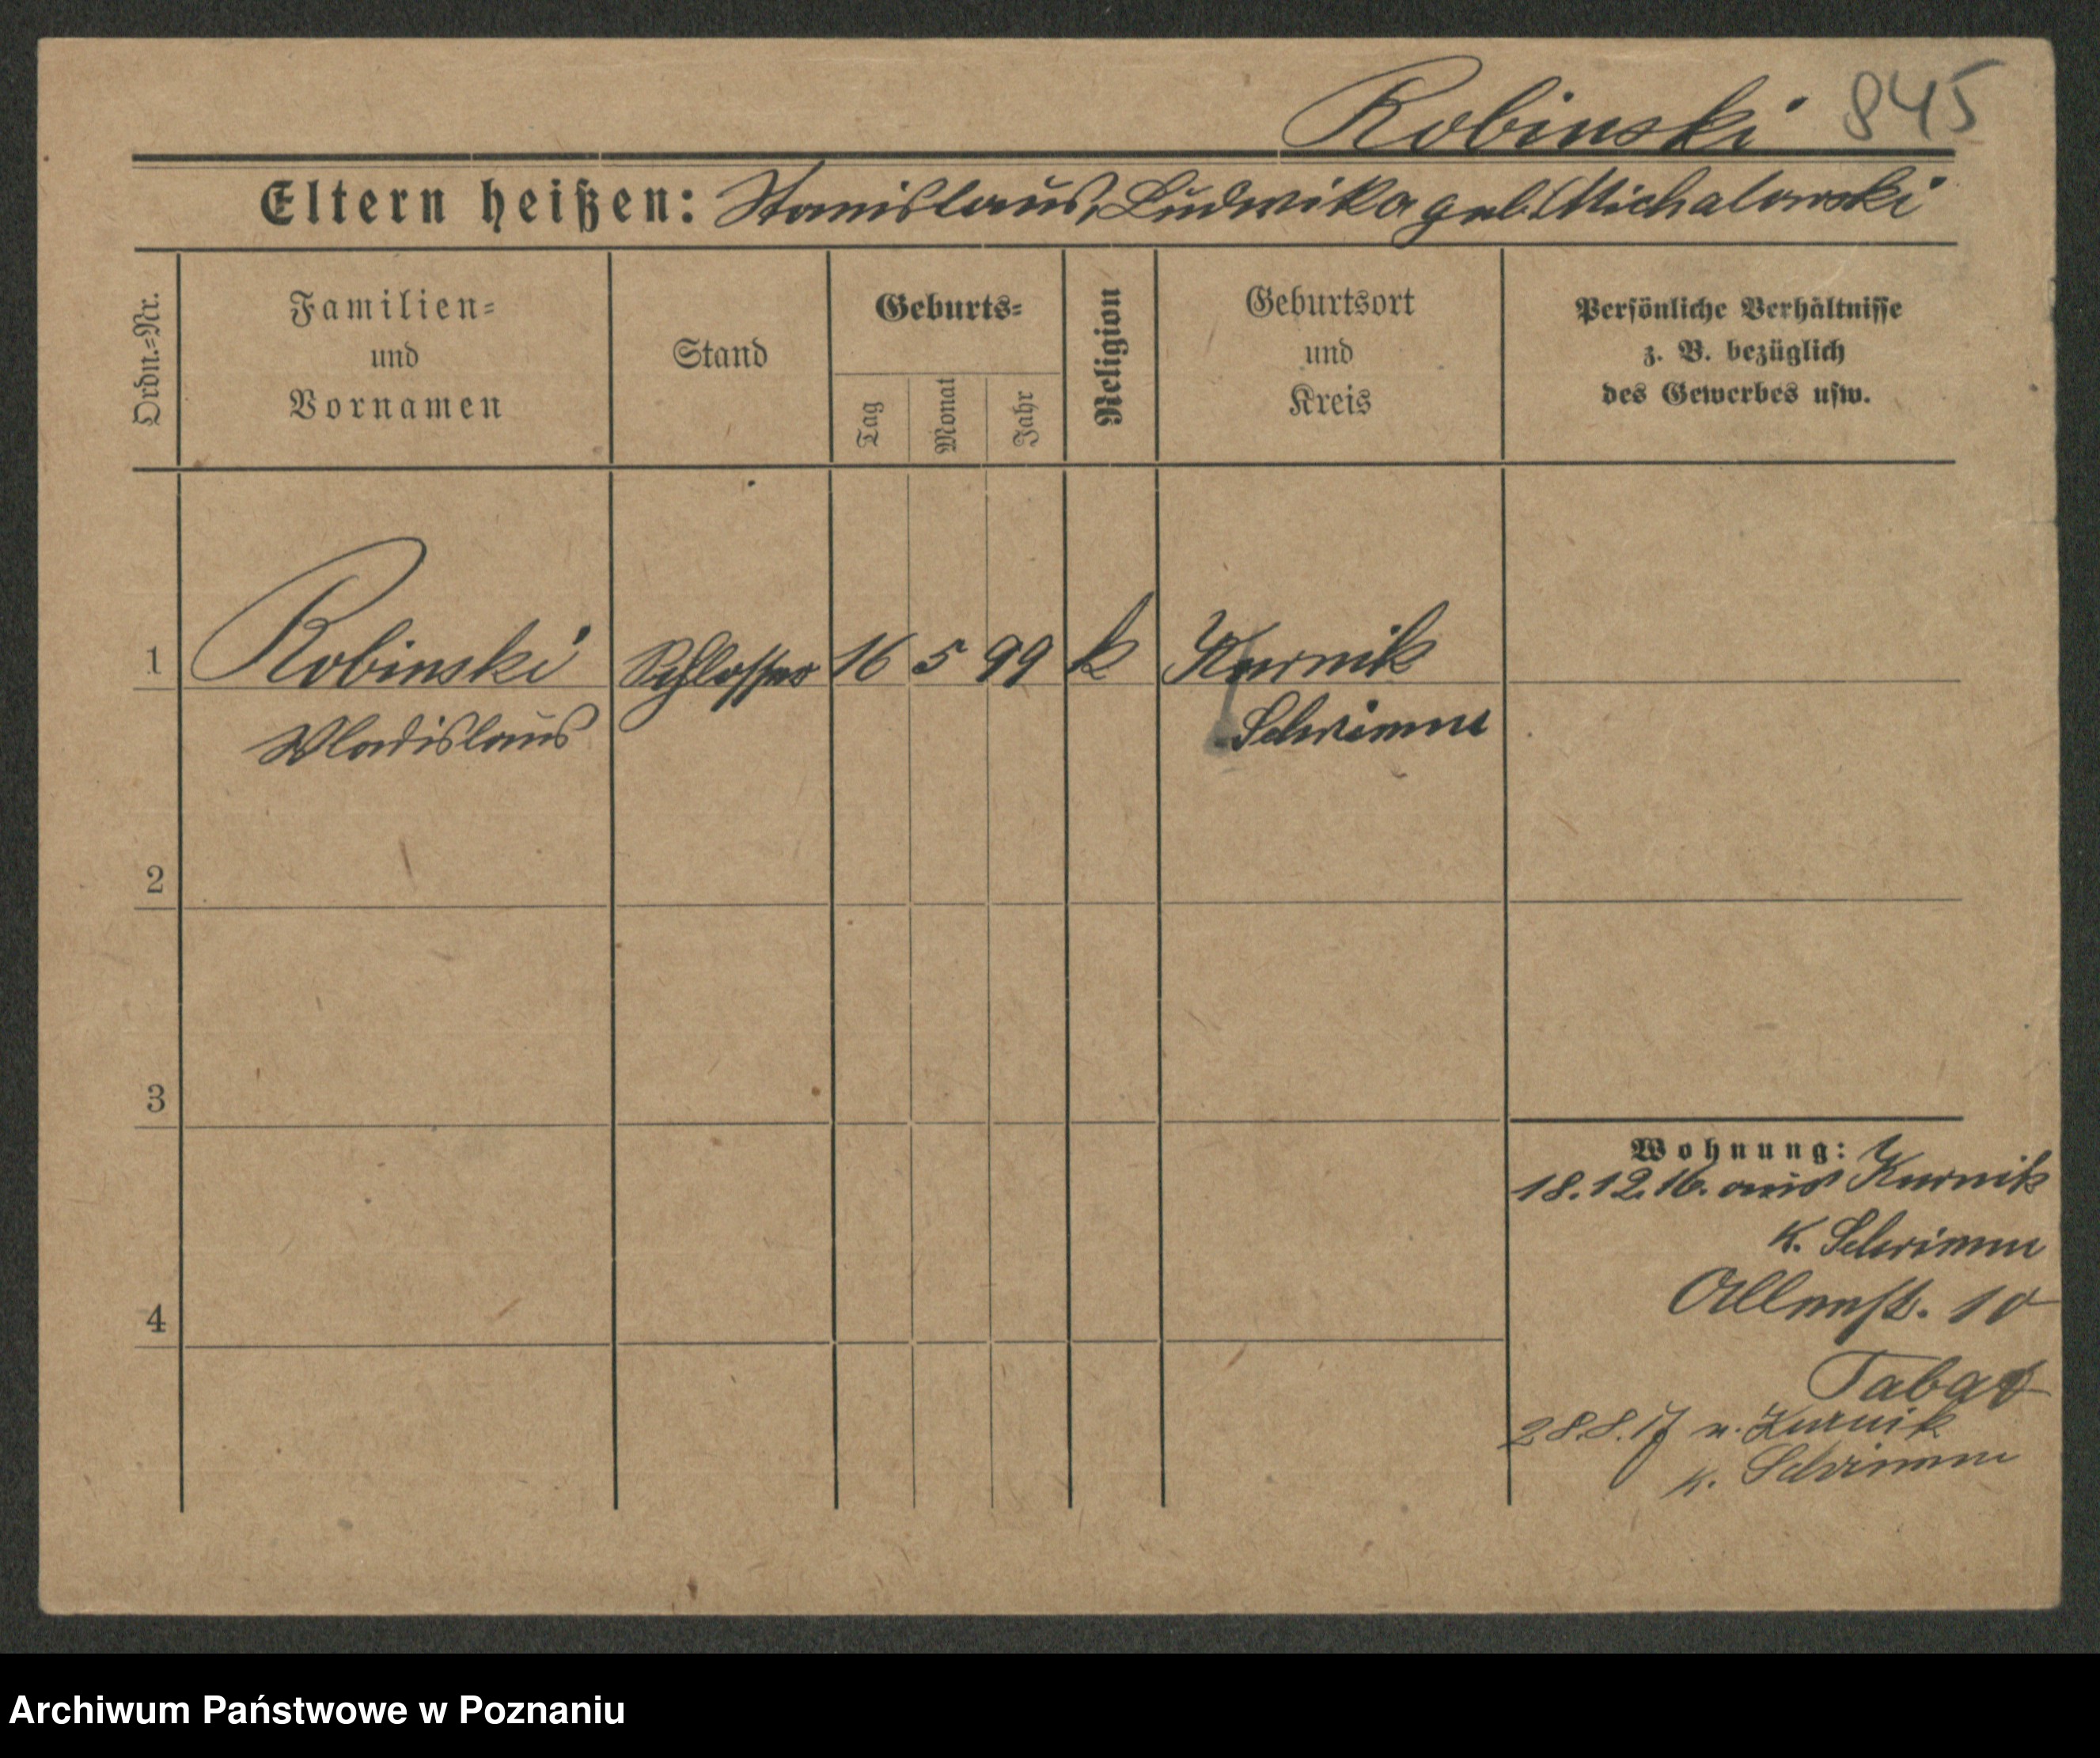 Robinski 845
Eltern heißen: Stanislaus, Ludwika geb. Michalowski
Ordn.=Nr.
Familien=
und
Vornamen
Stand
Geburts=
Tag
Monat
Jahr
Religion
Geburtsort
und
Kreis
Persönliche Verhältnisse
z. B. bezüglich
des Gewerbes usw.
1 Robinski Schlosser 16 5 99 k Kurnik
Wladislaus Schrimm
2
3
4
Wohnung:
18.12.16. aus Kurnik
K. Schrimm
10
28.8.17 n. Kurnik
K. Schrimm
Archiwum Państwowe w Poznaniu